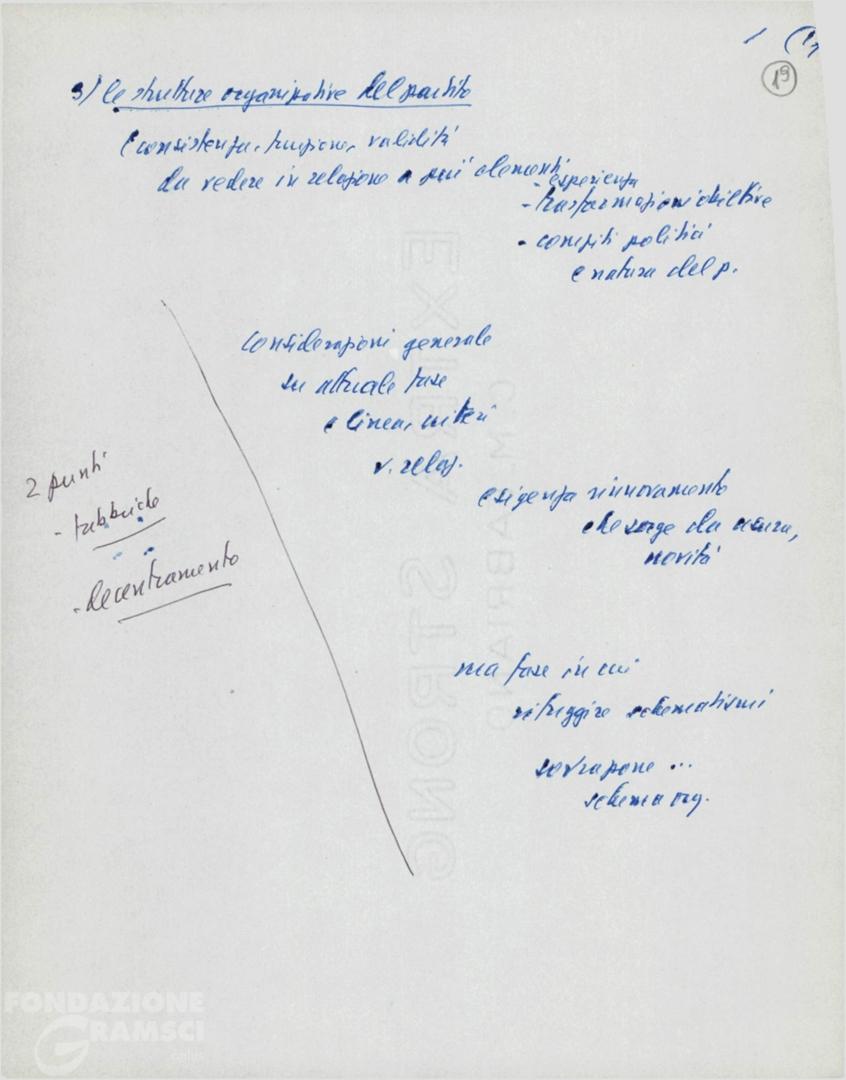 19
3) le strutture organizzative del partito
(consistenza, funzione, validità
da vedere in relazione a più elementi
- esperienza
- trasformazioni obiettive
- compiti politici
e natura del p.
considerazioni generale
su attuale fase
e linea, criteri
v. relaz.
esigenza rinnovamento
che sorge da usura,
novità
ma fase in cui
rifuggire schematismi
sovrapone ...
schema org.
2 punti
- fabbriche
- decentramento
EXTRA STRONG
FABRIANO
FONDAZIONE
GRAMSCI